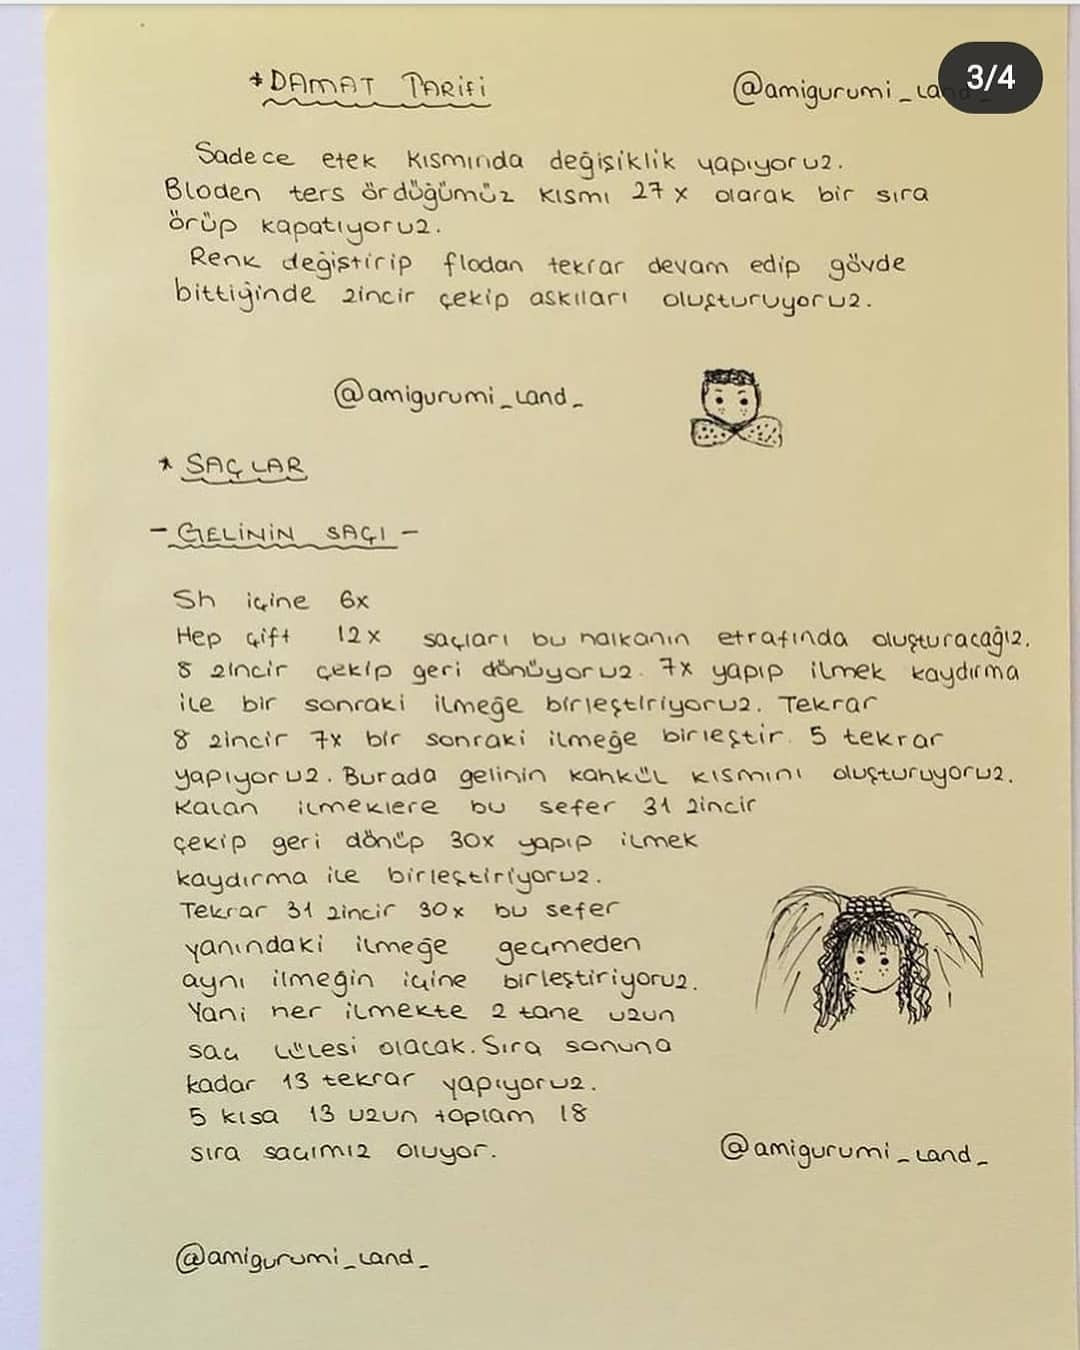 3/4
* DAMAT TARİFİ
@amigurumi_La
Sadece etek kısmında değişiklik yapıyoruz.
Bloden ters ördüğümüz kısmı 27x olarak bir sıra
örüp kapatıyoruz.
Renk değiştirip flodan tekrar devam edip gövde
bittiğinde zincir çekip askıları oluşturuyoruz.
@amigurumi_Land_
* SAÇLAR
- GELİNİN SAÇI -
Sh içine 6x
Hep çift 12x saçları bu halkanın etrafında oluşturacağız.
8 zincir çekip geri dönüyoruz. 7x yapıp ilmek kaydırma
ile bir sonraki ilmeğe birleştiriyoruz. Tekrar
8 zincir 7x bir sonraki ilmeğe birleştir. 5 tekrar
yapıyoruz. Burada gelinin kahkül kısmını oluşturuyoruz.
Kalan ilmeklere bu sefer 31 zincir
çekip geri dönüp 30x yapıp ilmek
kaydırma ile birleştiriyoruz.
Tekrar 31 zincir 30x bu sefer
yanındaki ilmeğe geçmeden
aynı ilmeğin içine birleştiriyoruz.
Yani her ilmekte 2 tane uzun
saç lülesi olacak. Sıra sonuna
kadar 13 tekrar yapıyoruz.
5 kısa 13 uzun toplam 18
sıra saçımız oluyor.
@amigurumi_Land_
@amigurumi_Land_